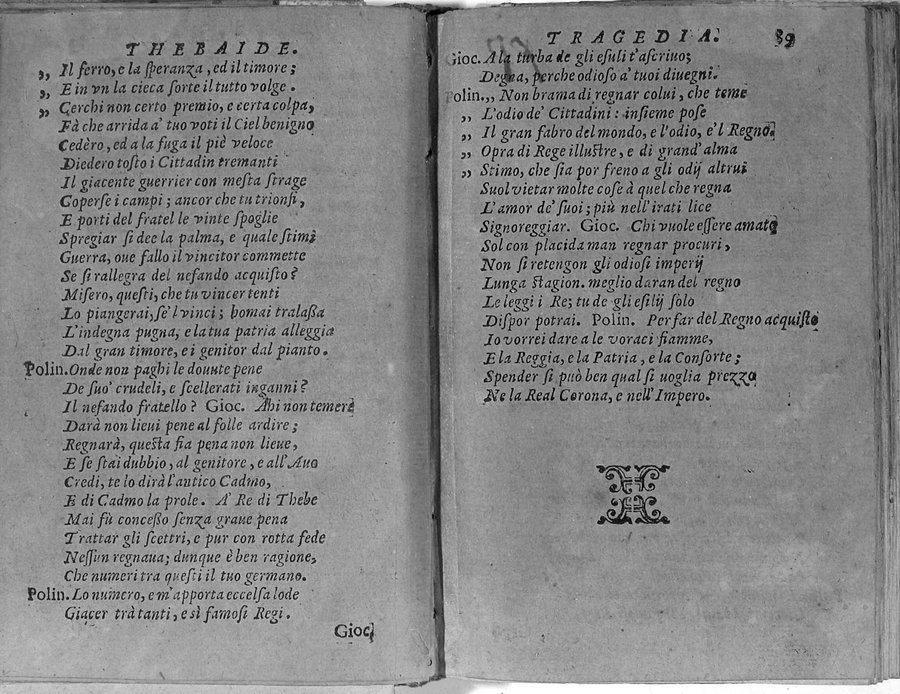 THEBAIDE.
„ Il ferro, e la ſperanza, ed il timore;
„ E in vn la cieca ſorte il tutto volge.
„ Cerchi non certo premio, e certa colpa,
Fà che arrida a' tuo voti il Ciel benigno
Cedèro, ed a la fuga il piè veloce
Diedero toſto i Cittadin tremanti
Il giacente guerrier con meſta ſtrage
Coperſe i campi; ancor che tu trionfi,
E porti del fratel le vinte ſpoglie
Spregiar ſi dee la palma, e quale ſtimi
Guerra, oue fallo il vincitor commette
Se ſi rallegra del nefando acquiſto?
Miſero, queſti, che tu vincer tenti
Lo piangerai, ſe'l vinci; homai tralaſſa
L'indegna pugna, e la tua patria alleggia
Dal gran timore, e i genitor dal pianto.
Polin. Onde non paghi le douute pene
De ſuo' crudeli, e ſcellerati inganni?
Il nefando fratello? Gioc. Ahi non temere
Darà non lieui pene al folle ardire;
Regnarà, queſta fia pena non lieue,
E ſe ſtai dubbio, al genitore, e all'Auo
Credi, te lo dirà l'antico Cadmo,
E di Cadmo la prole. A' Re di Thebe
Mai fù conceßo ſenza graue pena
Trattar gli ſcettri, e pur con rotta fede
Neſſun regnaua; dunque è ben ragione,
Che numeri tra queſti il tuo germano.
Polin. Lo numero, e m'apporta eccelſa lode
Giacer trà tanti, e sì famoſi Regi.
Gioc.
TRAGEDIA. 39
Gioc. A la turba de gli eſuli t'aſcriuo;
Degna, perche odioſo a' tuoi diuegni.
Polin.„ Non brama di regnar colui, che teme
„ L'odio de' Cittadini: inſieme poſe
„ Il gran fabro del mondo, e l'odio, e'l Regno.
„ Opra di Rege illuſtre, e di grand'alma
„ Stimo, che ſia por freno a gli odij altrui
Suol vietar molte coſe à quel che regna
L'amor de' ſuoi; più nell'irati lice
Signoreggiar. Gioc. Chi vuole eſſere amato
Sol con placida man regnar procuri,
Non ſi retengon gli odioſi imperij
Lunga ſtagion. meglio daran del regno
Le leggi i Re; tu de gli eſilij ſolo
Diſpor potrai. Polin. Per far del Regno acquiſto
Io vorrei dare a le voraci fiamme,
E la Reggia, e la Patria, e la Conſorte;
Spender ſi può ben qual ſi uoglia prezzo
Ne la Real Corona, e nell'Impero.